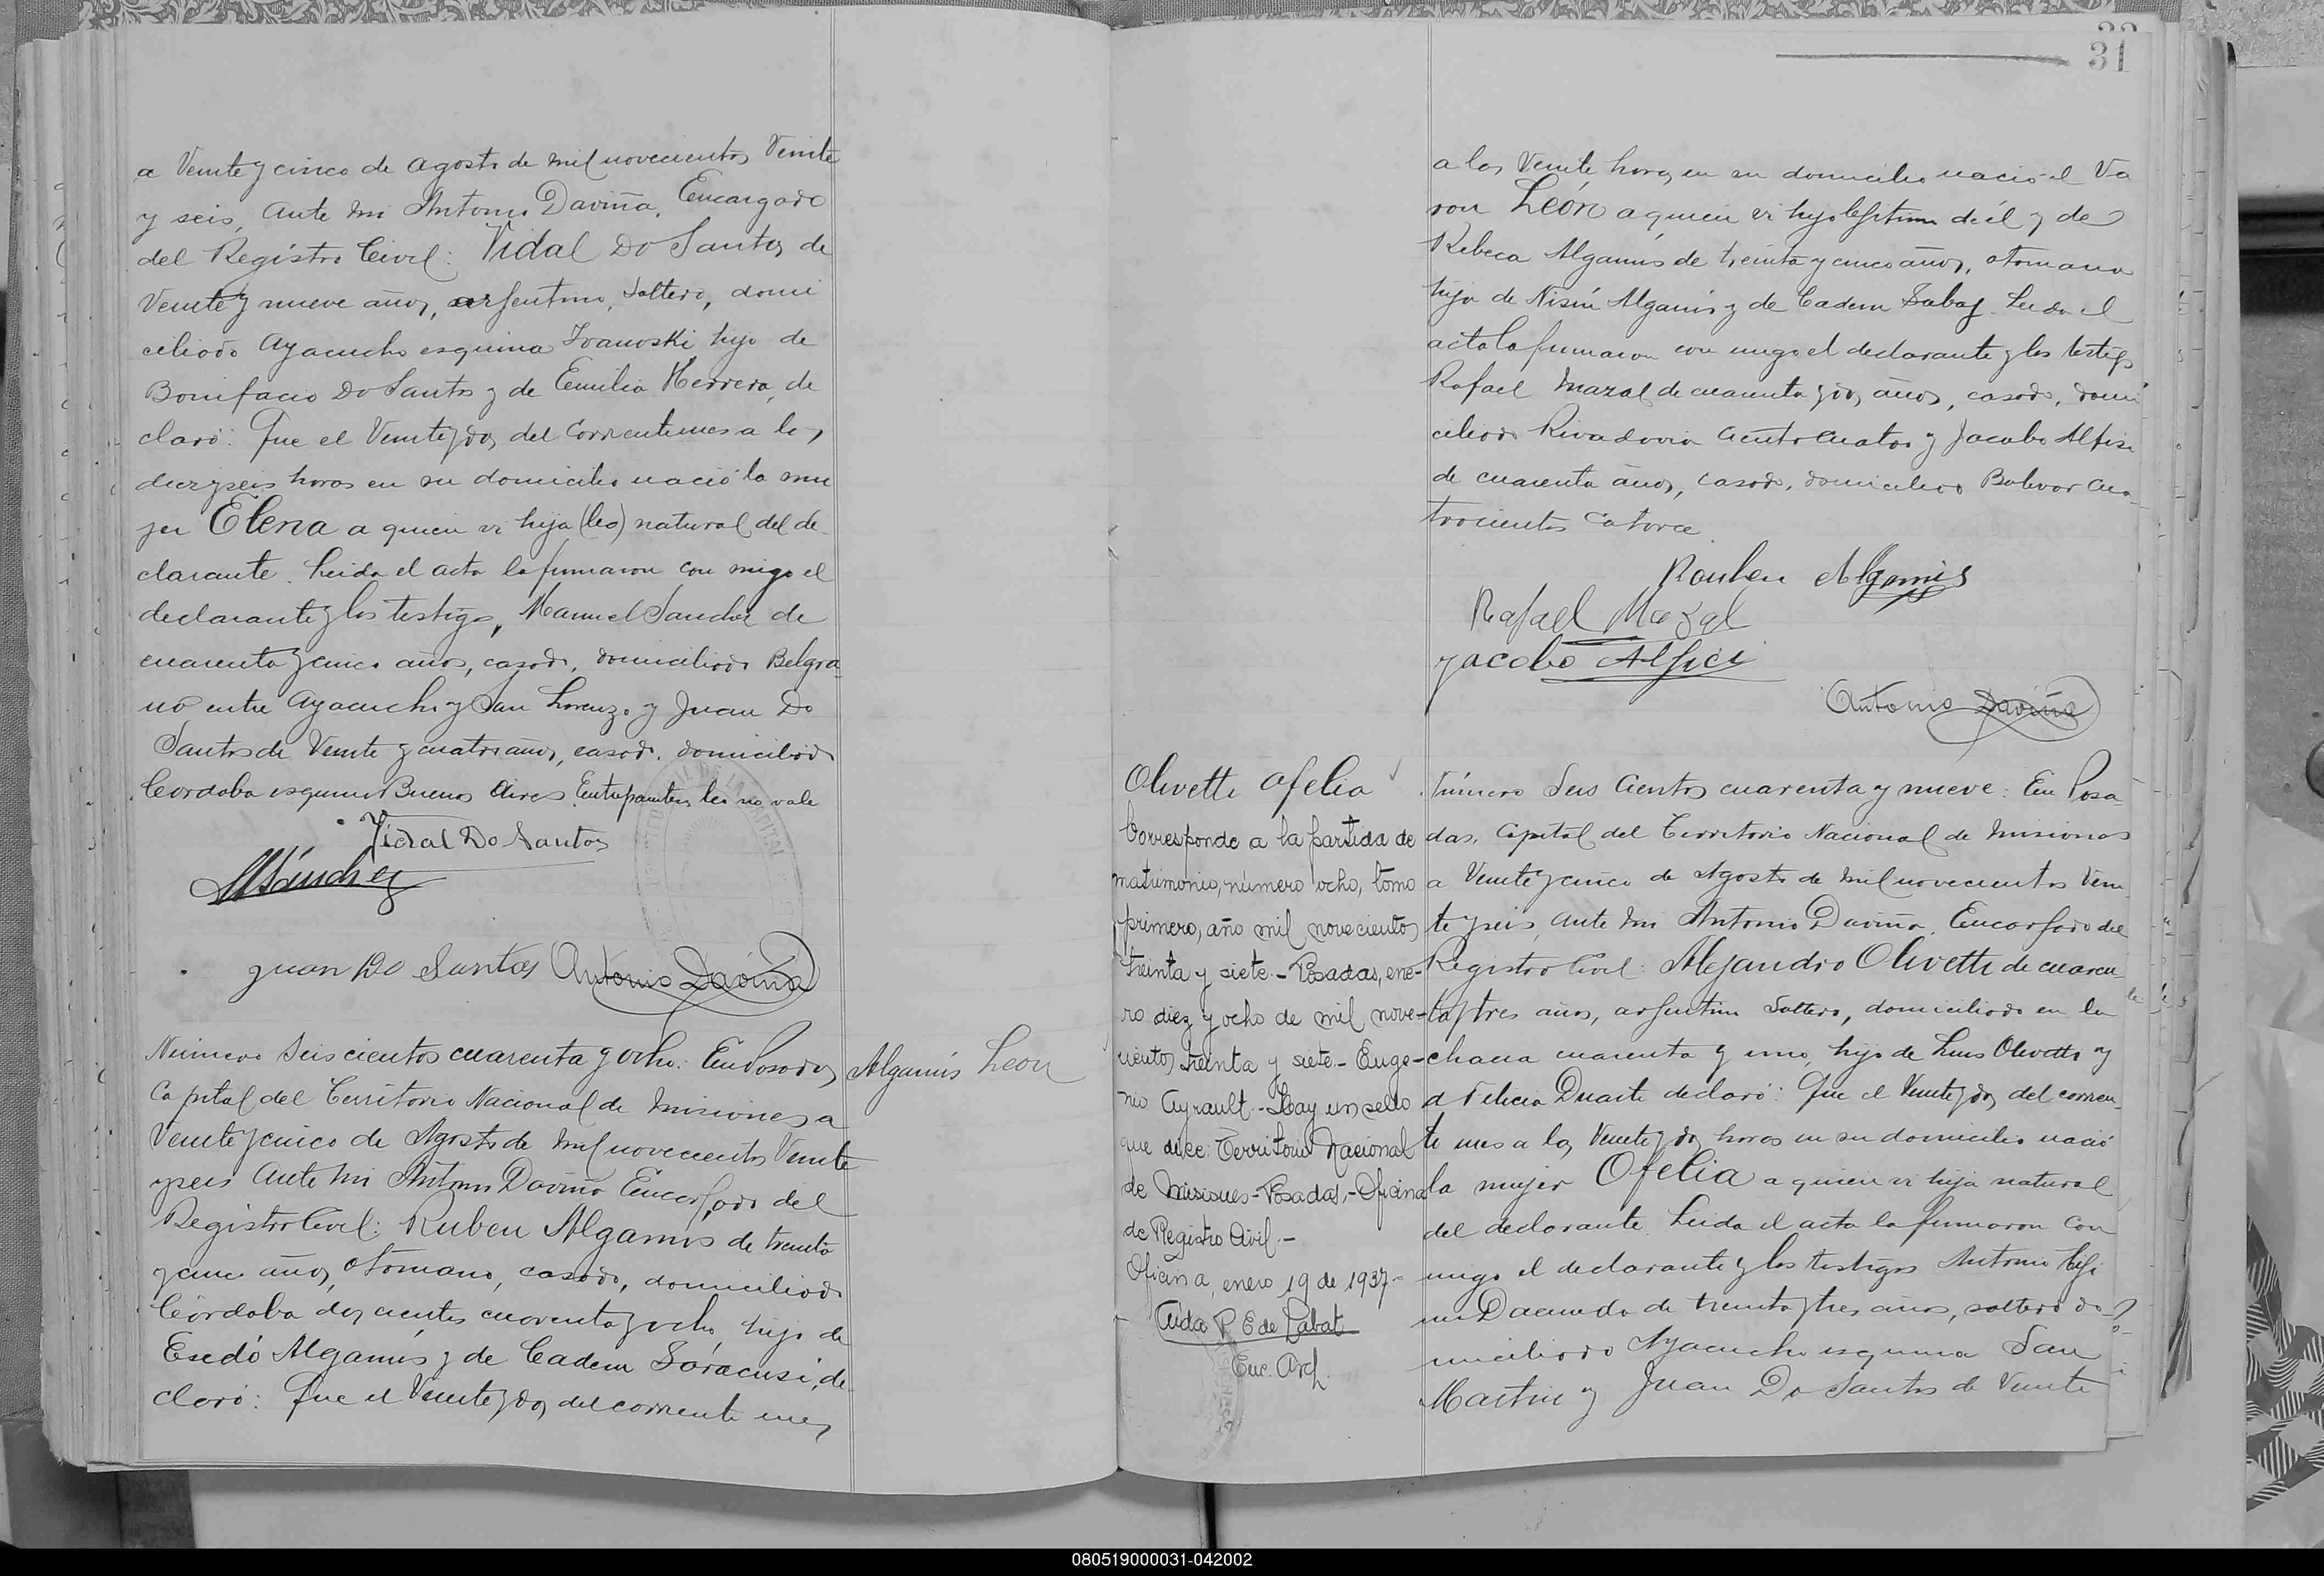 a Veinte y cinco de agosto de mil novecientos Veinte
y seis, ante mi Antonio Daviña, Encargado
del Registro Civil: Vidal Do Santos, de
Veinte y nueve años, argentino, soltero, domi
ciliado Ayacucho esquina Ivanoski hijo de
Bonifacio Do Santos y de Emilia Herrera, de
claró: Que el Veinte y dos del corriente mes a las
diez y seis horas en su domicilio nació la mu
jer Elena a quien vi hija (leg) natural del de
clarante. Leida el acta la firmaron con migo el
declarante y los testigos, Manuel Sanchez de
cuarenta y cinco años, casado, domiciliado Belgra
no entre Ayacucho y San Lorenzo y Juan Do
Santos de Veinte y cuatro años, casado, domiciliado
Cordoba esquina Buenos Aires. Entreparentesis leg no vale
Vidal Do Santos
MSánchez
Juan Do Santos Antonio Daviña
Número Seis cientos cuarenta y ocho: En Posadas
Capital del Territorio Nacional de Misiones a
Veinte y cinco de Agosto de mil novecientos Veinte
y seis ante mi Antonio Daviña Encargado del
Registro Civil: Ruben Algamis de treinta
y cinco años, otomano, casado, domiciliado
Córdoba dos cientos cuarenta y ocho, hijo de
Esedó Algamis y de Cadem Sáracusi, de
claró: Que el Veinte y dos del corriente mes
Algamis Leon
31
a las Veinte horas en su domicilio nació el Va
ron León a quien vi hijo lejitimo de él y de
Rebeca Algamis de treinta y cinco años, otomana
hija de Nisin Algamis y de Cadem Sabaj. Leida el
acta la firmaron con migo el declarante y los testigos
Rafael Mazal de cuarenta y dos años, casado, domi
ciliado Rivadavia ciento cuatro y Jacobo Alfici
de cuarenta años, casado, domiciliado Bolivar cua
trocientos catorce.
Rouben Algamis
Rafael Mazal
Jacobo Alfici
Antonio Daviña
Olivetti Ofelia
Corresponde a la partida de
matrimonio, número ocho, tomo
primero, año mil novecientos
treinta y siete.- Posadas, ene-
ro diez y ocho de mil nove-
cientos treinta y siete.- Euge-
nio Ayrault.- Hay un sello
que dice: Territorio Nacional
de Misiones-Posadas.-Oficina
de Registro Civil.-
Oficina, enero 19 de 1937-
Aida P. E de Labat
Enc. Arch.
Número Seis Cientos cuarenta y nueve: En Posa
das, Capital del Territorio Nacional de Misiones
a Veinte y cinco de Agosto de mil novecientos Vein
te y seis, ante mi Antonio Daviña, Encargado del
Registro Civil: Alejandro Olivetti de cuaren
ta y tres años, argentino soltero, domiciliado en la
chacra cuarenta y uno, hijo de Luis Olivetti y
d Felicia Duarte declaró: Que el Veinte y dos del corrien
te mes a las Veinte y dos horas en su domicilio nació
la mujer Ofelia a quien vi hija natural
del declarante. Leida el acta la firmaron con
migo el declarante y los testigos Antonio Cefe
rino Dacunda de treinta y tres años, soltero do
miciliado Ayacucho esquina San
Martin y Juan Do Santos de Veinte
080519000031-042002